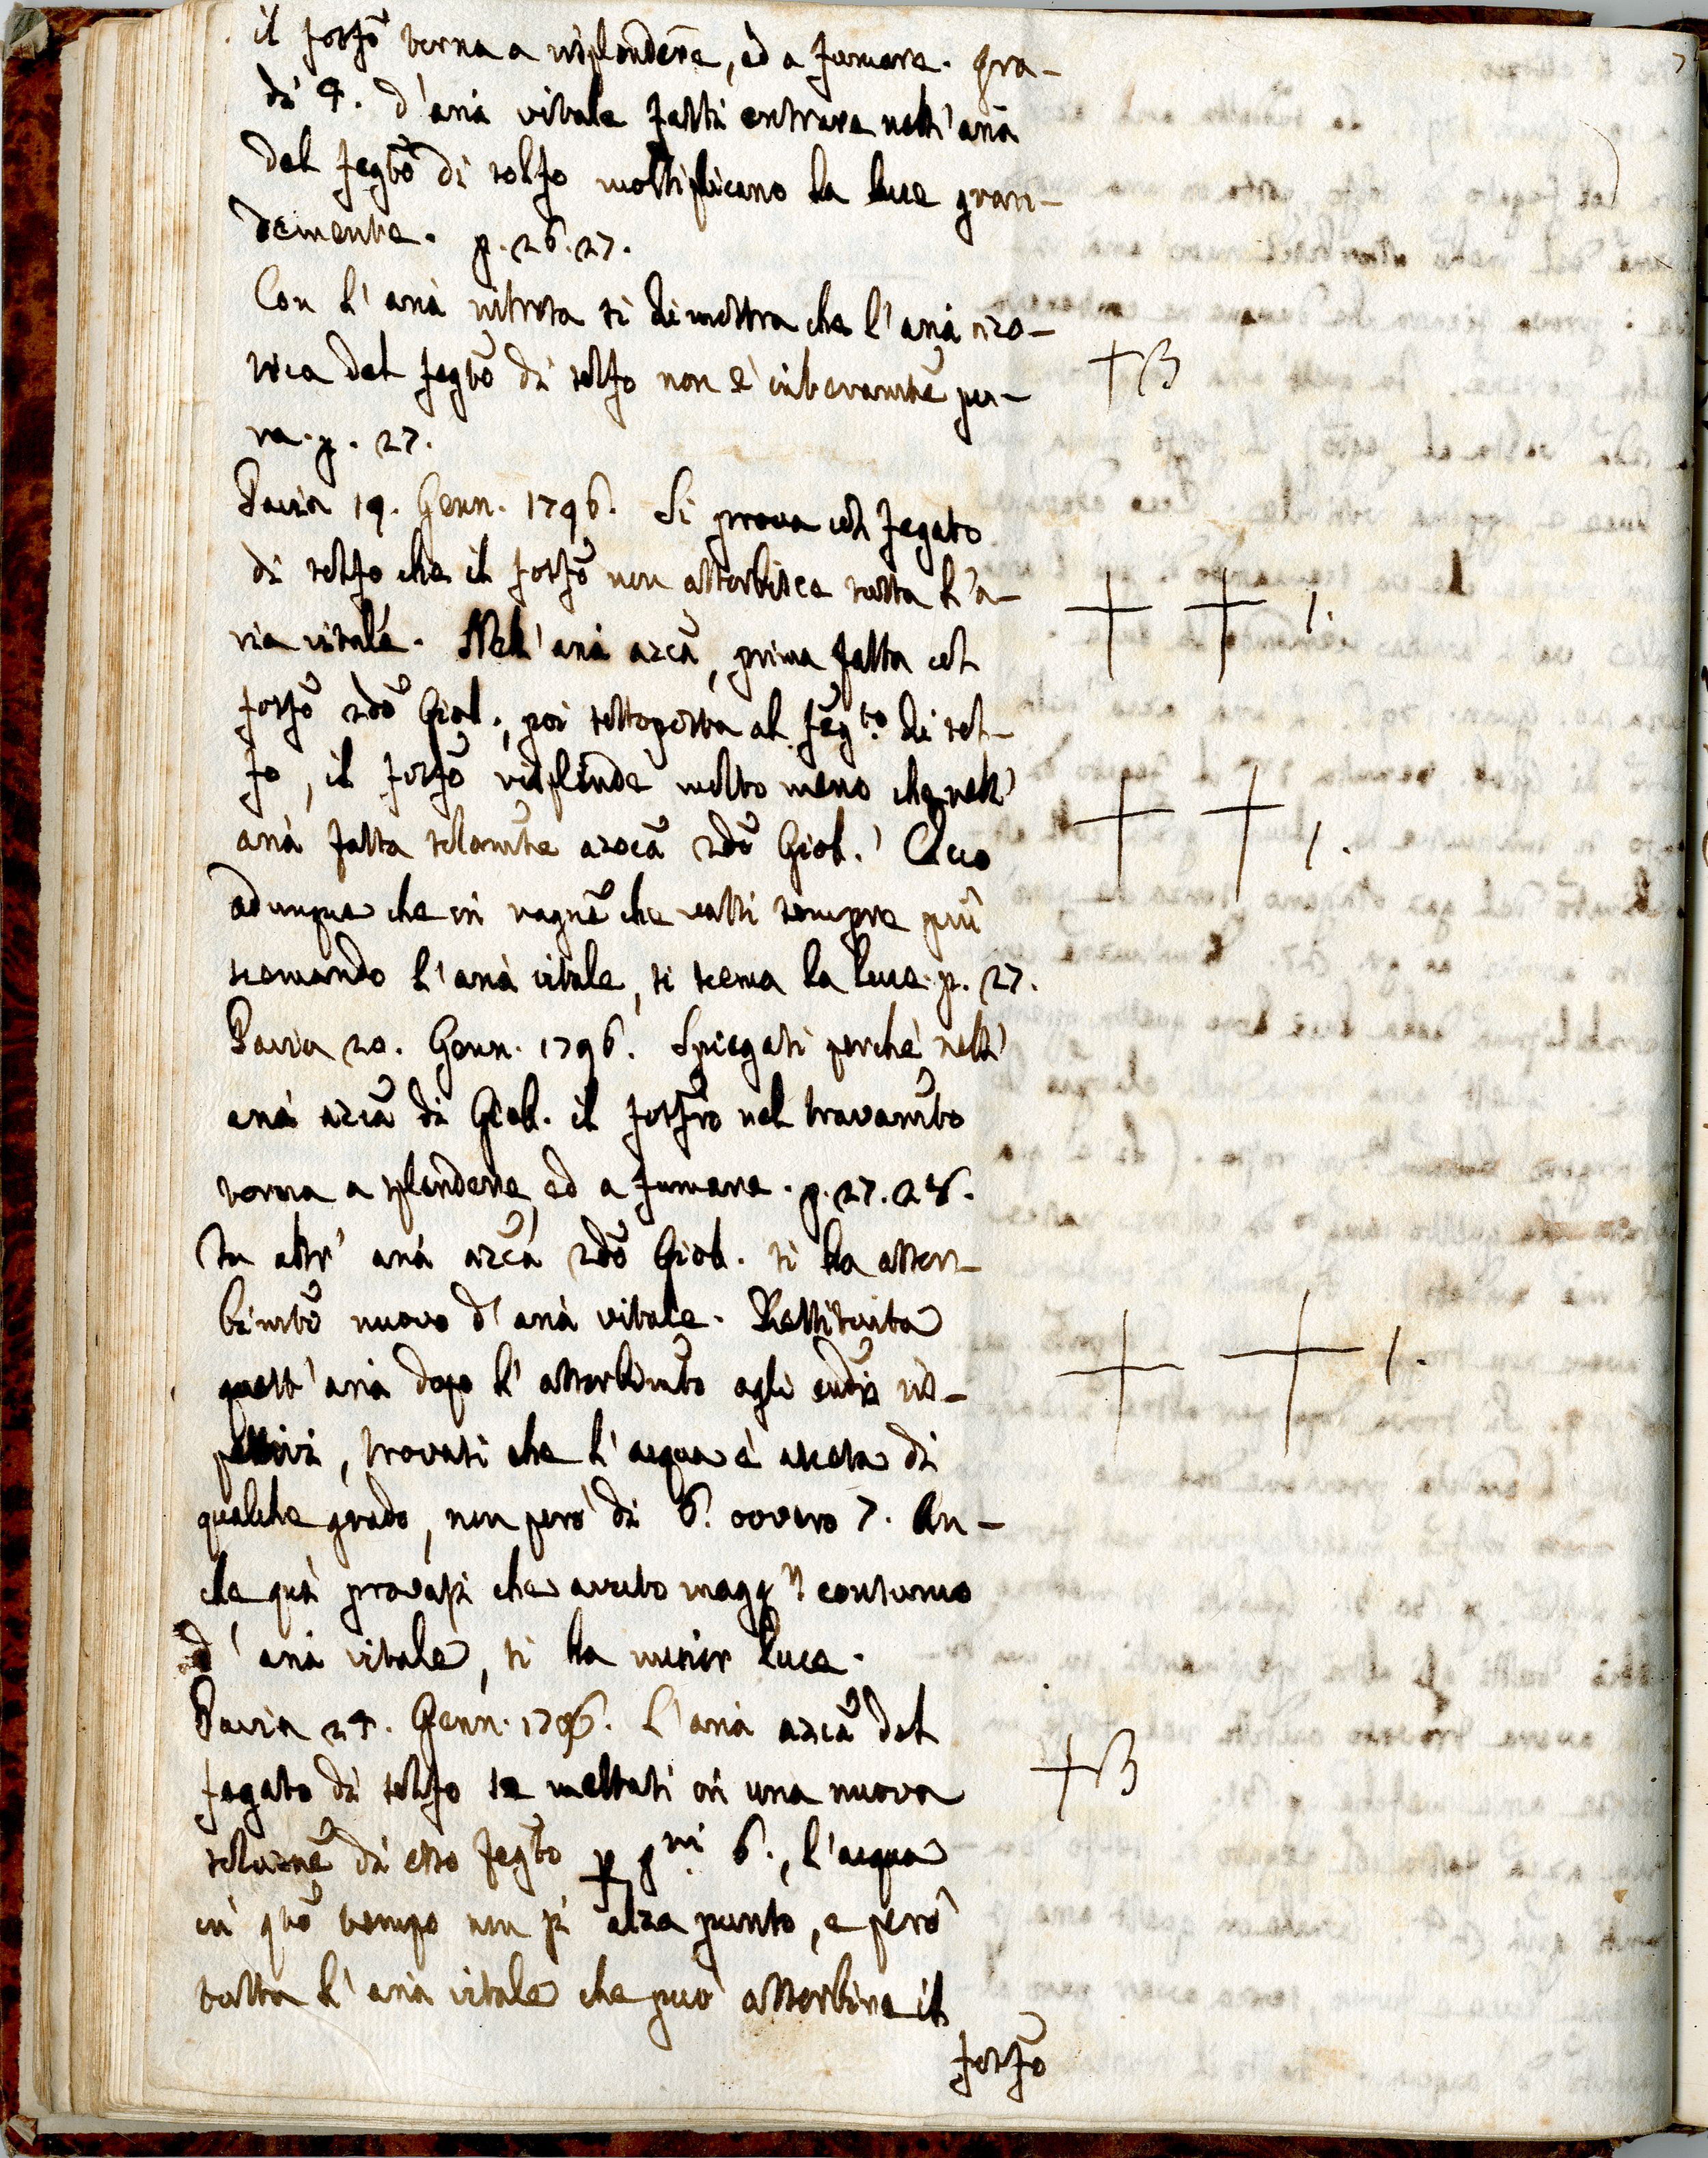 il fosfõ torna a risplendere, ed a fumare. Gra-
di 4. d'aria vitale fatti entrare nell'aria
del fegtõ di solfo moltiplicano la luce gran-
demente. p. 26. 27.
Con l'aria nitrosa si dimostra che l'aria azo-
tica del fegtõ di solfo non è interamtẽ pu-
ra. p. 27.
+B
Pavia 19. Genn. 1796. Si prova col fegato
di solfo che il fosfõ non assorbisce tutta l'a-
ria vitale. Nell'aria azcã, prima fatta col
+ + 1.
fosfõ 2dõ Giob., poi sottoposta al feg.to di sol-
fo, il fosfõ risplende molto meno che nell'
aria fatta solamte azocã 2dõ Giob. Ecco
+ + 1.
adunque che in ragnẽ che vassi sempre più
scemando l'aria vitale, si scema la luce. p. 27.
Pavia 20. Genn. 1796. Spiegasi perchè nell'
aria azcã di Giob. il fosfro nel travamto
torna a splendere, ed a fumare. p. 27. 28.
In altr'aria azcã 2dõ Giob. si ha assor-
bimtõ nuovo d'aria vitale. Restituita
quest'aria dopo l'assorbimto agli eudri ris-
+ + 1.
pettivi, trovasi che l'acqua è ascesa di
qualche grado, non però di 6. ovvero 7. An-
che quì provasi che avuto magg.r consumo
d'aria vitale, si ha minor luce.
Pavia 24. Genn. 1796. L'aria azcã del
fegato di solfo se mettasi in una nuova
+B
soluznẽ di esso fegtõ p gni 6., l'acqua
in qtõ tempo non si alza punto, e però
tutta l'aria vitale che può assorbire il
fosfõ